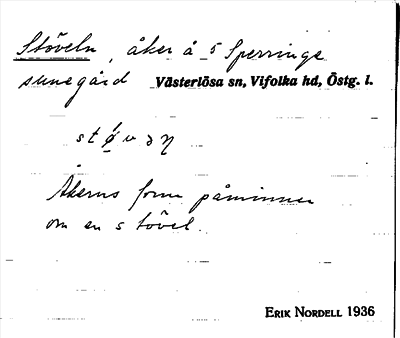 Stöveln, åker å S Sperringe
sunegård Västerlösa sn, Vifolka hd, Östg. l.
støvəη
Åkerns form påminner
om en stövel.
ERIK NORDELL 1936